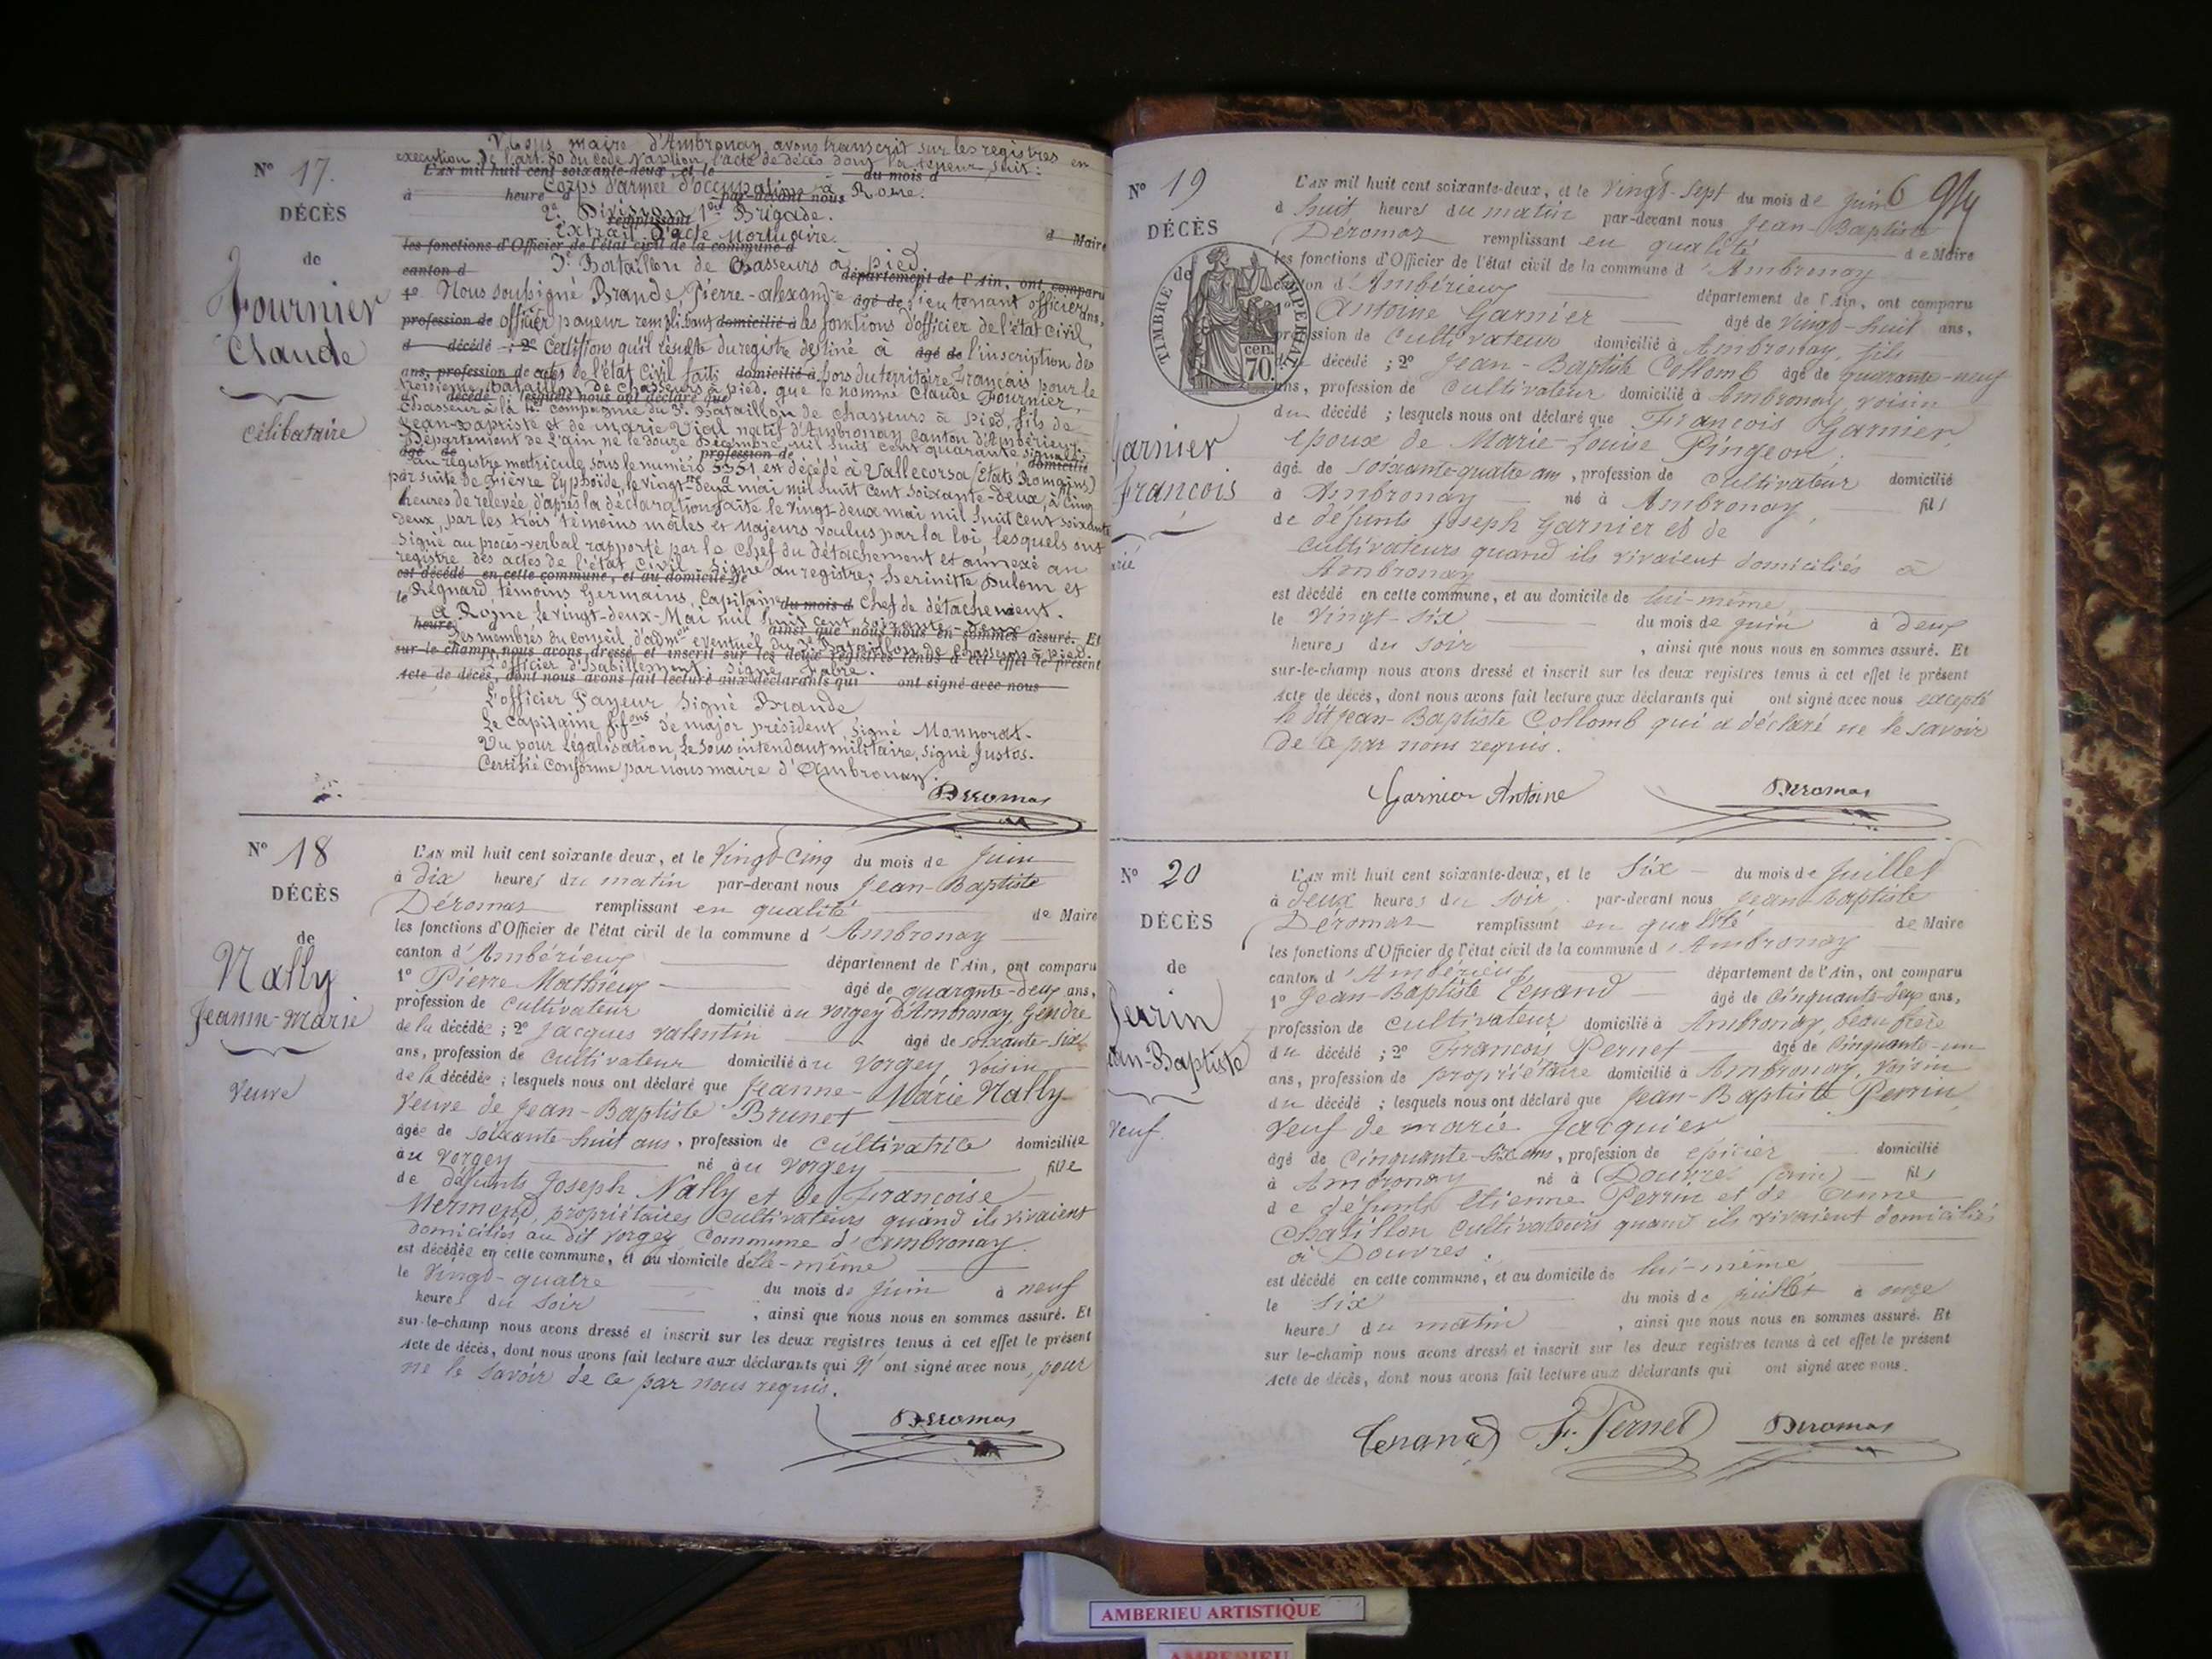 Nº 17.
DÉCÈS
de
Fournier
Claude
Célibataire
Nous maire d'Ambronay, avons transcrit sur les registres en
execution de l'art. 80 du code Napoléon, l'acte de décès dont la teneur suit:
L'AN mil huit cent soixante-deux, et le du mois d
Corps d'armée d'occupation à Rome.
à heure d par-devant nous
2e Division 1ère Brigade.
remplissant
Extrait d'acte Mortuaire.
les fonctions d'Officier de l'état civil de la commune d d Maire
3e Bataillon de Chasseurs à pied
canton d département de l'Ain, ont comparu
1º Nous soussigné Brande, Pierre-alexandre âgé de lieutenant officier ans,
profession de officier payeur remplissant domicilié à les fonctions d'officier de l'état civil,
d décédé ; 2º Certifions qu'il résulte du registre destiné à âgé de l'inscription des
ans, profession de actes de l'état Civil faits domicilié à hors du territoire Français pour le
troisième bataillon de chasseurs à pied, que le nommé Claude Fournier,
d décédé lesquels nous ont déclaré que
Chasseur à la 4e compagnie du 3e Bataillon de chasseurs à Pied, fils de
Jean-Baptiste et de Marie Vial natif d'Ambronay Canton d'Ambérieux
Département de l'ain né le douze Décembre mil huit cent quarante, signalé
âgé de profession de domicilié
au registre matricule sous le numéro 5351 est décédé à Vallecorsa (États Romains)
par suite de Fièvre typhoïde, le vingt-deux mai mil huit cent soixante-deux, à cinq
heures de relevée, d'après la déclaration faite le vingt-deux mai mil huit cent soixante
deux, par les trois témoins mâles et majeurs voulus par la loi, lesquels ont
signé au procès-verbal rapporté par le chef du détachement et annexé au
registre des actes de l'état civil. Signé au registre; Dulom et
est décédé en cette commune, et au domicile de
le Régnard, témoins Germains, Capitaine du mois d Chef de détachement.
A Rome le vingt-deux-Mai mil huit cent soixante-deux
heure ainsi que nous nous en sommes assuré. Et
Les membres du conseil d'admon éventuel du 3e Bataillon de chasseurs à pied.
sur-le-champ nous avons dressé et inscrit sur les deux registres tenus à cet effet le présent
L'officier d'habillement: signé Fabre.
Acte de décès, dont nous avons fait lecture aux déclarants qui ont signé avec nous
L'officier Payeur Signé Brande
Le Capitaine f.fons de major, président, signé Monnorat.
Vu pour légalisation, le sous intendant militaire, signé Justos.
Certifié Conforme par nous maire d'Ambronay.
Deromas
Nº 18
DÉCÈS
de
Nally
Jeanne-Marie
Veuve
L'AN mil huit cent soixante deux, et le Vingt-Cinq du mois de Juin
à dix heures du matin par-devant nous Jean-Baptiste
Déromas remplissant en qualité de Maire
les fonctions d'Officier de l'état civil de la commune d'Ambronay
canton d'Ambérieux département de l'Ain, ont comparu
1º Pierre Mathieux âgé de quarante-deux ans,
profession de Cultivateur domicilié au vorgey d'Ambronay Gendre
de la décédée ; 2º Jacques Valentin âgé de soixante-six
ans, profession de Cultivateur domicilié au Vorgey Voisin
de la décédée ; lesquels nous ont déclaré que Jeanne-Marie Nally
Veuve de Jean-Baptiste Brunet
âgée de soixante-huit ans, profession de Cultivatrice domiciliée
au Vorgey né au Vorgey fille
de défunts Joseph Nally et de Françoise
Mermend, propriétaires cultivateurs quand ils vivaient
domiciliés au dit Vorgey commune d'Ambronay.
est décédée en cette commune, et au domicile d'elle-même
le Vingt-quatre du mois de Juin à neuf
heures du Soir , ainsi que nous nous en sommes assuré. Et
sur-le-champ nous avons dressé et inscrit sur les deux registres tenus à cet effet le présent
Acte de décès, dont nous avons fait lecture aux déclarants qui n'ont signé avec nous, pour
ne le savoir de ce par nous requis.
Deromas
Nº 19
DÉCÈS
de
TIMBRE IMPÉRIAL
70 cen.
Garnier
François
arié
6
L'AN mil huit cent soixante-deux, et le Vingt-Sept du mois de Juin
à huit heures du matin par-devant nous Jean-Baptiste
Déromas remplissant en qualité de Maire
les fonctions d'Officier de l'état civil de la commune d'Ambronay
canton d'Ambérieux département de l'Ain, ont comparu
1º Antoine Garnier âgé de Vingt-huit ans,
profession de Cultivateur domicilié à Ambronay, fils
du décédé ; 2º Jean-Baptiste Collomb âgé de quarante-neuf
ans, profession de Cultivateur domicilié à Ambronay, voisin
du décédé ; lesquels nous ont déclaré que François Garnier,
époux de Marie-Louise Pingeon.
âgé de soixante-quatre ans, profession de Cultivateur domicilié
à Ambronay né à Ambronay, fils
de défunts Joseph Garnier et de
Cultivateurs quand ils vivaient domiciliés à
Ambronay
est décédé en cette commune, et au domicile de lui-même,
le Vingt-six du mois de juin à deux
heures du soir , ainsi que nous nous en sommes assuré. Et
sur-le-champ nous avons dressé et inscrit sur les deux registres tenus à cet effet le présent
Acte de décès, dont nous avons fait lecture aux déclarants qui ont signé avec nous excepté
le dit Jean-Baptiste Collomb qui a déclaré ne le savoir
de ce par nous requis.
Garnier Antoine Deromas
Nº 20
DÉCÈS
de
Perrin
ean-Baptiste
Veuf.
L'AN mil huit cent soixante-deux, et le Six du mois de Juillet
à deux heures du soir par-devant nous Jean-Baptiste
Déromas remplissant en qualité de Maire
les fonctions d'Officier de l'état civil de la commune d'Ambronay
canton d'Ambérieux département de l'Ain, ont comparu
1º Jean-Baptiste Tenand âgé de Cinquante-deux ans,
profession de Cultivateur domicilié à Ambronay, beau frère
du décédé ; 2º François Pernet âgé de Cinquante-un
ans, profession de propriétaire domicilié à Ambronay, Voisin
du décédé ; lesquels nous ont déclaré que Jean-Baptiste Perrin,
Veuf de marie Jacquier
âgé de Cinquante-six ans, profession de épicier domicilié
à Ambronay né à Douvres (ain) fils
de défunts Etienne Perrin et de Anne
Chatillon Cultivateurs quand ils vivaient domiciliés
à Douvres.
est décédé en cette commune, et au domicile de lui-même,
le Six du mois de juillet à onze
heures du matin , ainsi que nous nous en sommes assuré. Et
sur le-champ nous avons dressé et inscrit sur les deux registres tenus à cet effet le présent
Acte de décès, dont nous avons fait lecture aux déclarants qui ont signé avec nous.
Tenand F. Pernet Deromas
AMBERIEU ARTISTIQUE
AMBERIEU